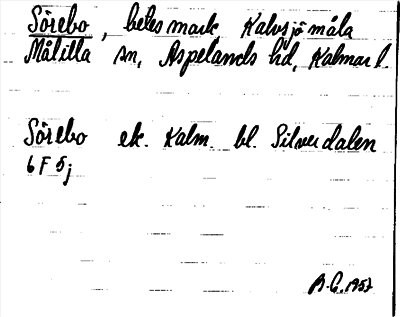 Sörebo, betesmark, Kalvsjömåla
Målilla sn, Aspelands hd, Kalmar l.
Sörebo ek. Kalm. bl. Silverdalen
6 F 5j
A.G. 1957